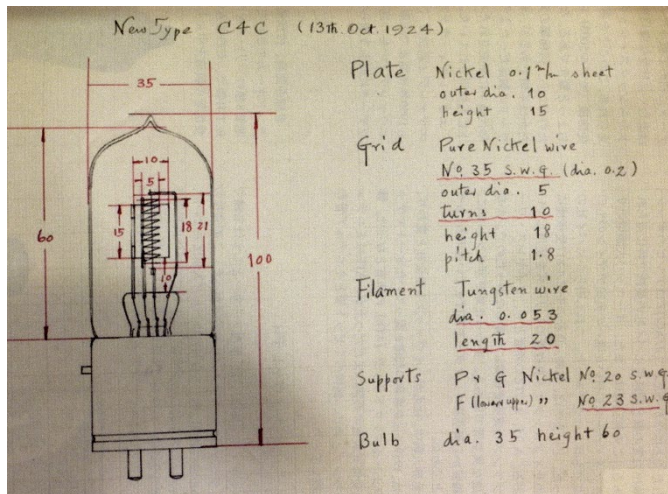 New Type C4C (13th. Oct. 1924)
35
Plate Nickel 0.1 m/m sheet
outer dia. 10
height 15
Grid Pure Nickel wire
No. 35 S.W.G. (dia. 0.2)
outer dia. 5
turns 10
height 18
pitch 1.8
10
5
60
15
18
21
10
100
Filament Tungsten wire
dia. 0.053
length 20
Supports P & G Nickel No. 20 S.W.G.
F (lower & upper) " No. 23 S.W.G
Bulb dia. 35 height 60